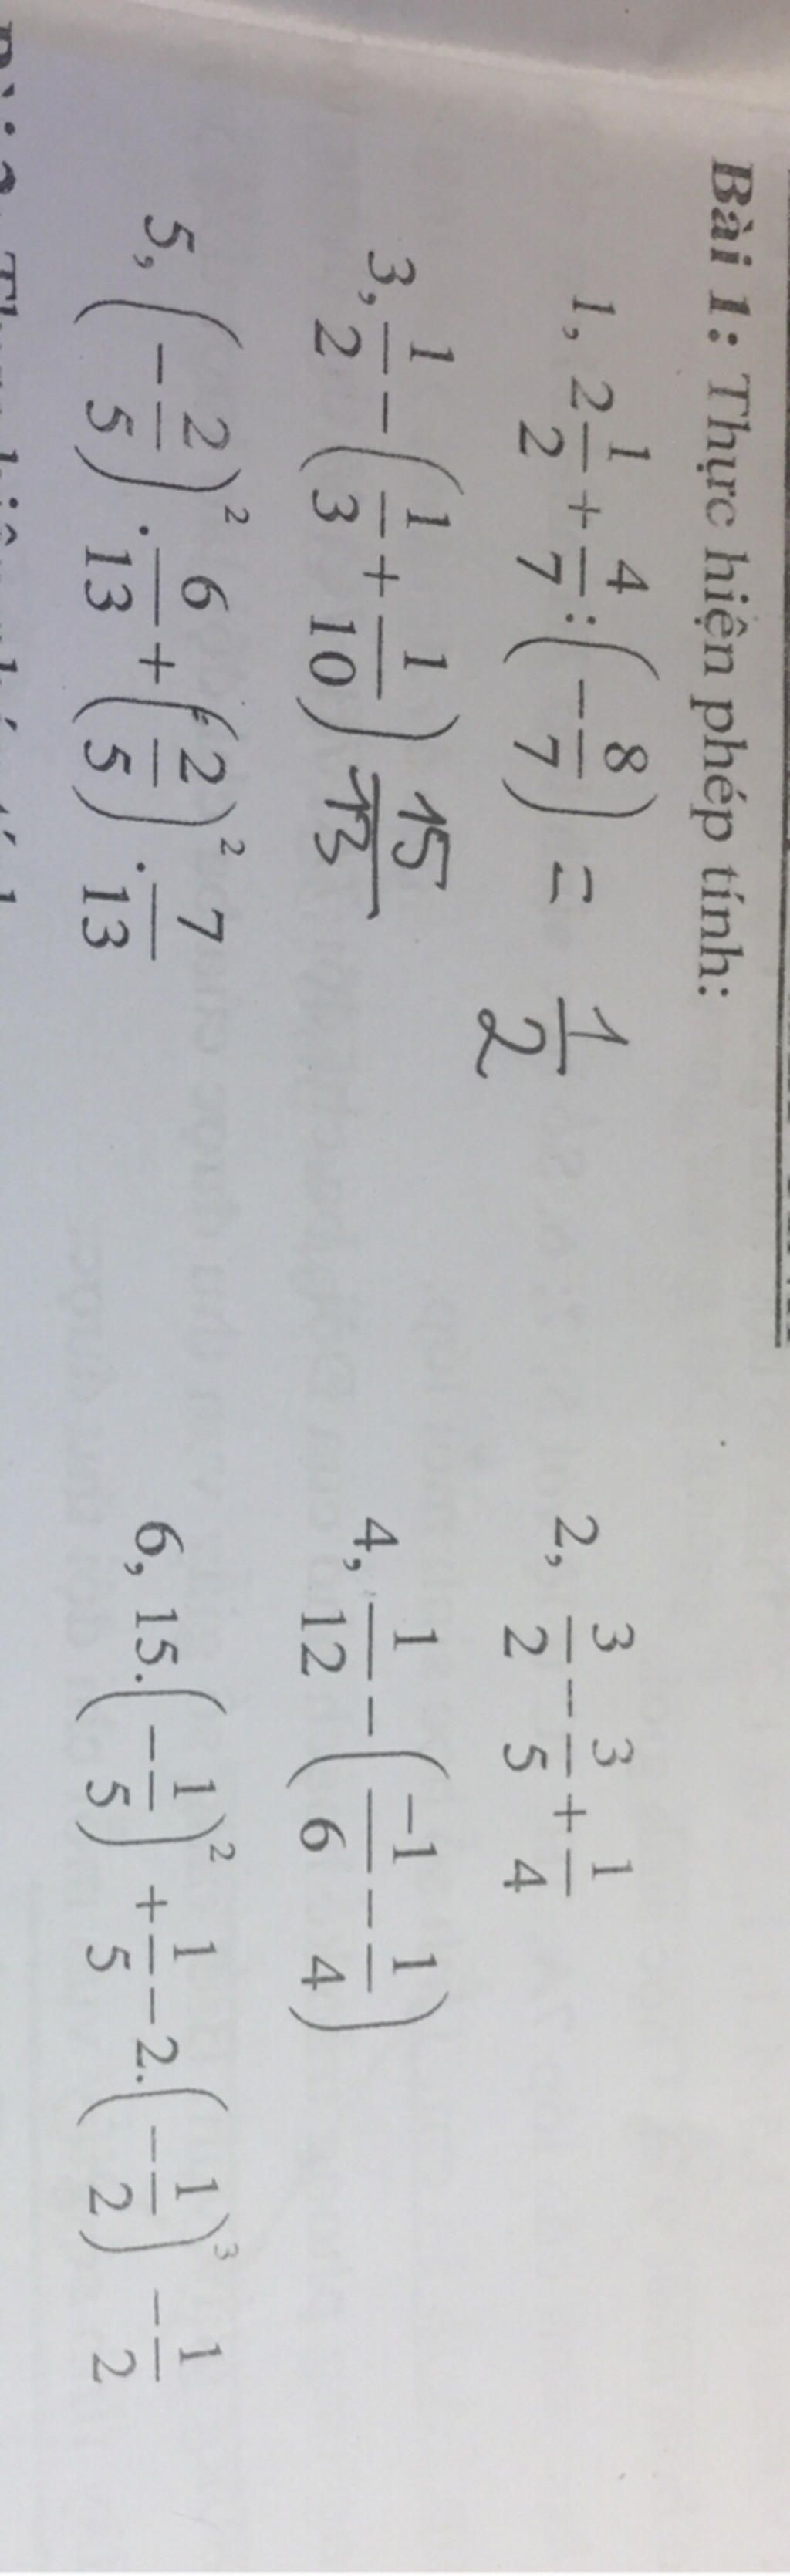 Bài 1: Thực hiện phép tính:
1, 2 1/2 + 4/7 : (-8/7) = 1/2
2, 3/2 - 3/5 + 1/4
3, 1/2 - (1/3 + 1/10) 15/13
4, 1/12 - (-1/6 - 1/4)
5, (-2/5)² . 6/13 + (-2/5)² . 7/13
6, 15.(-1/5)² + 1/5 - 2.(-1/2)³ - 1/2